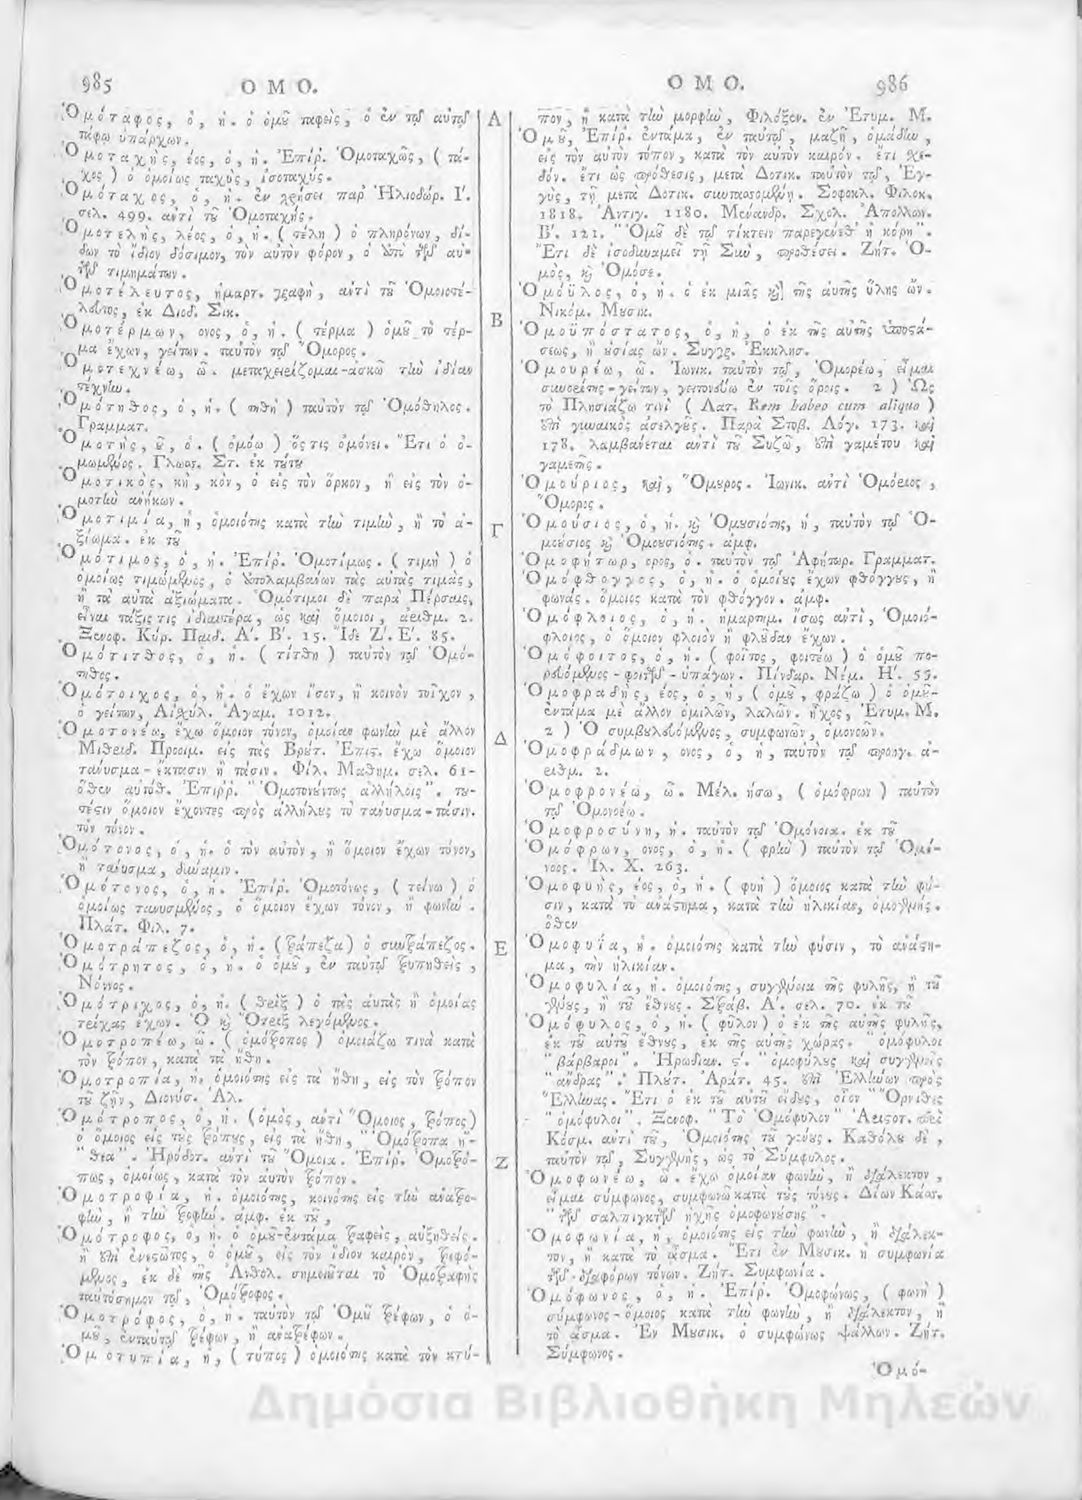 985 Ο Μ Ο.
Ὁμόταφος, ὁ, ἡ. ὁ ὁμοῦ ταφεὶς, ὁ ἐν τῷ αὐτῷ
τάφῳ ὑπάρχων.
Ὁμοταχὴς, έος, ὁ, ἡ. Ἐπίρ. Ὁμοταχῶς, ( τά-
χος ) ὁ ὁμοίως ταχὺς, ἰσοταχύς.
Ὁμόταχος, ὁ, ἡ. ἐν χρήσει παρ Ἡλιοδώρ. Γ.
σελ. 499. αὐτὶ τοῦ Ὁμοταχής.
Ὁμοτελὴς, λέος, ὁ, ἡ. ( τέλη ) ὁ πληρόνων, δί-
δων τὸ ἴδιον δόσιμον, τὸν αὐτὸν φόρον, ὁ ἀπὸ τῶν αὐ-
τῶν τιμημάτων.
Ὁμοτέλευτος, ἡμαρτ. γραφὴ, αὐτὶ τοῦ Ὁμοιοτέ-
λευτος, ἐκ Διοδ. Σικ.
Ὁμοτέρμων, ονος, ὁ, ἡ. ( τέρμα ) ὁμοῦ τὸ τέρ-
μα ἔχων, γείτων. ταὐτὸν τῷ Ὅμορος.
Ὁμοτεχνέω, ῶ. μεταχειρίζομαι-ἀσκῶ τὴν ἰδίαν
τέχνην.
Ὁμότηθος, ὁ, ἡ. ( τηθὴ ) ταὐτὸν τῷ Ὁμόθηλος.
Γραμματ.
Ὁμοτὴς, οῦ, ὁ. ( ὁμόω ) ὅςτις ὁμόνει. Ἔτι ὁ ὀ-
μωμένος. Γλωσσ. Στ. ἐκ τούτου
Ὁμοτικὸς, κὴ, κὸν, ὁ εἰς τὸν ὅρκον, ἢ εἰς τὸν ὀ-
μοτὴν ἀνήκων.
Ὁμοτιμία, ἡ, ὁμοιότης κατὰ τὴν τιμὴν, ἢ τὸ ἀ-
ξίωμα. ἐκ τοῦ
Ὁμότιμος, ὁ, ἡ. Ἐπίρ. Ὁμοτίμως. ( τιμὴ ) ὁ
ὁμοίως τιμώμενος, ὁ ἀπολαμβάνων τὰς αὐτὰς τιμὰς,
ἢ τὰ αὐτὰ ἀξιώματα. Ὁμότιμοι δὲ παρὰ Πέρσαις,
εἶναι τάξις τις ἰδιαιτέρα, ὡς καὶ ὅμοιοι, ἀριθμ. 2.
Ξενοφ. Κύρ. Παιδ. Α΄. Β΄. 15. Ἰδὲ Ζ΄. Ε΄. 85.
Ὁμότιτθος, ὁ, ἡ. ( τίτθη ) ταὐτὸν τῷ Ὁμό-
τηθος.
Ὁμότοιχος, ὁ, ἡ. ὁ ἔχων ἴσον, ἢ κοινὸν τοῖχον,
ὁ γείτων, Αἰσχύλ. Ἀγαμ. 1012.
Ὁμοτονέω, ἔχω ὅμοιον τόνον, ὁμοίαν φωνὴν μὲ ἄλλον
Μιθριδ. Προοιμ. εἰς τὰς Βρούτ. Ἐπις. ἔχω ὅμοιον
τάνυσμα-ἔκτασιν ἢ τάσιν. Φίλ. Μαθημ. σελ. 61-
ὅθεν αὐτόθ. Ἐπιρρ. "Ὁμοτονούντως ἀλλήλοις". του-
τέςιν ὅμοιον ἔχοντες πρὸς ἀλλήλους τὸ τάνυσμα-τάσιν.
τὸν τόνον.
Ὁμότονος, ὁ, ἡ. ὁ τὸν αὐτὸν, ἢ ὅμοιον ἔχων τόνον,
ἢ τάνυσμα, δύναμιν.
Ὁμότονος, ὁ, ἡ. Ἐπίρ. Ὁμοτόνως, ( τείνω ) ὁ
ὁμοίως τανυσμένος, ὁ ὅμοιον ἔχων τόνον, ἢ φωνὴν.
Πλάτ. Φιλ. 7.
Ὁμοτράπεζος, ὁ, ἡ. ( τράπεζα) ὁ συντράπεζος.
Ὁμότρητος, ὁ, ἡ. ὁ ὁμοῦ, ἐν ταὐτῷ τρυπηθεὶς,
Νόννος.
Ὁμότριχος, ὁ, ἡ. ( θρὶξ ) ὁ τὰς αὐτὰς ἢ ὁμοίας
τρίχας ἔχων. Ὁ καὶ Ὄτριξ λεγόμενος.
Ὁμοτροπέω, ῶ. ( ὁμότροπος ) ὁμοιάζω τινὰ κατὰ
τὸν τρόπον, κατὰ τὰ ἤθη.
Ὁμοτροπία, ἡ. ὁμοιότης εἰς τὰ ἤθη, εἰς τὸν τρόπον
τοῦ ζῆν, Διονύσ. Ἁλ.
Ὁμότροπος, ὁ, ἡ. (ὁμὸς, αὐτὶ Ὅμοιος, τρόπος)
ὁ ὅμοιος εἰς τοὺς τρόπους, εἰς τὰ ἤθη, "Ὁμότροπα ἤ-
"θεα". Ἡρόδοτ. αὐτὶ τοῦ Ὅμοια. Ἐπίρ. Ὁμοτρό-
πως, ὁμοίως, κατὰ τὸν αὐτὸν τρόπον.
Ὁμοτροφία, ἡ. ὁμοιότης, κοινότης εἰς τὴν ἀνατρο-
φὴν, ἢ τὴν τροφὴν. ἀμφ. ἐκ τοῦ,
Ὁμότροφος, ὁ, ἡ. ὁ ὁμοῦ-ἐντάμα τραφεὶς, αὐξηθείς.
ἢ ἐπὶ ἐνεςῶτος, ὁ ὁμοῦ, εἰς τὸν ἴδιον καιρὸν, τρεφό-
μενος, ἐκ δὲ τῆς Ἀνθολ. σημειοῦται τὸ Ὁμοτραφὴς
ταὐτόσημον τῷ, Ὁμότροφος.
Ὁμοτρόφος, ὁ, ἡ. ταὐτὸν τῷ Ὁμοῦ τρέφων, ὁ ὁ-
μοῦ, ἐνταὐτῷ τρέφων, ἢ ἀνατρέφων.
Ὁμοτυπία, ἡ, ( τύπος ) ὁμοιότης κατὰ τὸν κτύ-
Α
Β
Γ
Δ
Ε
Ζ
Ο Μ Ο. 986
πον, ἢ κατὰ τὴν μορφὴν, Φιλόξεν. ἐν Ἐτυμ. Μ.
Ὁμοῦ, Ἐπίρ. ἐντάμα, ἐν ταὐτῷ, μαζῆ, ὁμάδην,
εἰς τὸν αὐτὸν τόπον, κατὰ τὸν αὐτὸν καιρὸν. ἔτι σχε-
δὸν. ἔτι ὡς πρόθεσις, μετὰ Δοτικ. ταὐτὸν τῷ, Ἐγ-
γὺς, τῇ μετὰ Δοτικ. συντασσομένῃ. Σοφοκλ. Φιλοκ.
1818. Ἀντιγ. 1180. Μένανδρ. Σχολ. Ἀπολλων.
Β΄. 121. "Ὁμοῦ δὲ τῷ τίκτειν παρεγένεθ' ἡ κόρη".
Ἔτι δὲ ἰσοδυναμεῖ τῇ Σὺν, προθέσει. Ζήτ. Ὁ-
μὸς, καὶ Ὁμόσε.
Ὁμόϋλος, ὁ, ἡ. ὁ ἐκ μιᾶς καὶ τῆς αὐτῆς ὕλης ὤν.
Νικόμ. Μουσικ.
Ὁμοϋπόστατος, ὁ, ἡ, ὁ ἐκ τῆς αὐτῆς ὑποςά-
σεως, ἢ οὐσίας ὤν. Συγγρ. Ἐκκλησ.
Ὁμουρέω, ῶ. Ἰωνικ. ταὐτὸν τῷ, Ὁμορέω, εἶμαι
συνορίτης-γείτων, γειτονεύω ἐν τοῖς ὅροις. 2 ) Ὡς
τὸ Πλησιάζω τινὶ ( Λατ. Rem habeo cum aliquo )
ἐπὶ γυναικὸς ἀσελγοῦς. Παρὰ Στοβ. Λόγ. 173. καὶ
178. λαμβάνεται αὐτὶ τοῦ Συζῶ, ἐπὶ γαμέτου καὶ
γαμετῆς.
Ὁμούριος, καὶ, Ὅμουρος. Ἰωνικ. αὐτὶ Ὁμόριος,
Ὅμορος.
Ὁμούσιος, ὁ, ἡ. καὶ Ὁμουσιότης, ἡ, ταὐτὸν τῷ Ὁ-
μοούσιος καὶ Ὁμοουσιότης. ἀμφ.
Ὁμοφήτωρ, ορος, ὁ. ταὐτὸν τῷ Ἀφήτωρ. Γραμματ.
Ὁμόφθογγος, ὁ, ἡ. ὁ ὁμοίους ἔχων φθόγγους, ἢ
φωνὰς. ὅμοιος κατὰ τὸν φθόγγον. ἀμφ.
Ὁμόφλοιος, ὁ, ἡ. ἡμαρτημ. ἴσως αὐτὶ, Ὁμοιό-
φλοιος, ὁ ὅμοιον φλοιὸν ἢ φλούδαν ἔχων.
Ὁμόφοιτος, ὁ, ἡ. ( φοῖτος, φοιτέω ) ὁ ὁμοῦ πο-
ρευόμενος-φοιτῶν-ὑπάγων. Πίνδαρ. Νέμ. Η΄. 55.
Ὁμοφραδὴς, έος, ὁ, ἡ, ( ὁμοῦ, φράζω ) ὁ ὁμοῦ-
ἐντάμα μὲ ἄλλον ὁμιλῶν, λαλῶν. ἦχος, Ἐτυμ. Μ.
2 ) Ὁ συμβουλευόμενος, συμφωνῶν, ὁμονοῶν.
Ὁμοφράδμων, ονος, ὁ, ἡ, ταὐτὸν τῷ προηγ. ἀ-
ριθμ. 2.
Ὁμοφρονέω, ῶ. Μέλ. ήσω, ( ὁμόφρων ) ταὐτὸν
τῷ Ὁμονοέω.
Ὁμοφροσύνη, ἡ. ταὐτὸν τῷ Ὁμόνοια. ἐκ τοῦ
Ὁμόφρων, ονος, ὁ, ἡ. ( φρὴν ) ταὐτὸν τῷ Ὁμό-
νοος. Ἰλ. Χ. 263.
Ὁμοφυὴς, έος, ὁ, ἡ. ( φυὴ ) ὅμοιος κατὰ τὴν φύ-
σιν, κατὰ τὸ ἀνάστημα, κατὰ τὴν ἡλικίαν, ὁμογενής.
ὅθεν
Ὁμοφυΐα, ἡ. ὁμοιότης κατὰ τὴν φύσιν, τὸ ἀνάστη-
μα, τὴν ἡλικίαν.
Ὁμοφυλία, ἡ. ὁμοιότης, συγγένεια τῆς φυλῆς, ἢ τοῦ
γένους, ἢ τοῦ ἔθνους. Στράβ. Α΄. σελ. 70. ἐκ τοῦ
Ὁμόφυλος, ὁ, ἡ. ( φῦλον) ὁ ἐκ τῆς αὐτῆς φυλῆς,
ἐκ τοῦ αὐτοῦ ἔθνους, ἐκ τῆς αὐτῆς χώρας. "ὁμόφυλοι
"βάρβαροι". Ἡρωδιαν. ς΄. "ὁμοφύλους καὶ συγγενεῖς
"ἄνδρας". Πλούτ. Ἀράτ. 45. ἐπὶ Ἑλλήνων πρὸς
Ἕλληνας. Ἔτι ὁ ἐκ τοῦ αὐτοῦ εἴδους, οἷον "Ὄρνιθες
"ὁμόφυλοι". Ξενοφ. "Τὸ Ὁμόφυλον" Ἀριςοτ. περὶ
Κόσμ. αὐτὶ τοῦ, Ὁμοιότης τοῦ γένους. Καθόλου δὲ,
ταὐτὸν τῷ, Συγγενὴς, ὡς τὸ Σύμφυλος.
Ὁμοφωνέω, ῶ. ἔχω ὁμοίαν φωνὴν, ἢ διάλεκτον,
εἶμαι σύμφωνος, συμφωνῶ κατὰ τοὺς τόνους. Δίων Κάσσ.
"τῶν σαλπιγκτῶν ἠχῆς ὁμοφωνούσης".
Ὁμοφωνία, ἡ, ὁμοιότης εἰς τὴν φωνὴν, ἢ διάλεκ-
τον, ἢ κατὰ τὸ ᾆσμα. Ἔτι ἐν Μουσικ. ἡ συμφωνία
τῶν διαφόρων τόνων. Ζήτ. Συμφωνία.
Ὁμόφωνος, ὁ, ἡ. Ἐπίρ. Ὁμοφώνως, ( φωνὴ )
σύμφωνος-ὅμοιος κατὰ τὴν φωνὴν, ἢ διάλεκτον, ἢ
τὸ ᾆσμα. Ἐν Μουσικ. ὁ συμφώνως ψάλλων. Ζήτ.
Σύμφωνος.
Ὁμό-
Δημόσια Βιβλιοθήκη Μηλεών